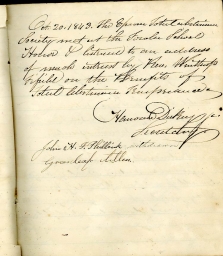 Oct. 20. 1843. The Epsom Total abstinence
Society met at the Center School
House & listened to an address
of much interest by Rev. Winthrop
Fifield on the Benefits of
Total Abstinence
Secretary
John H. F.
Greenleaf